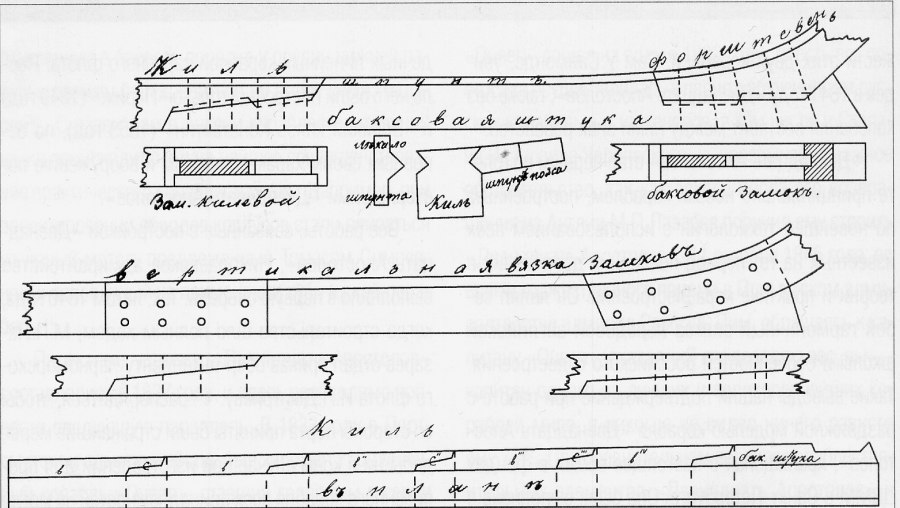 Киль
шпунтъ
форштевень
баксовая штука
лекало
шпунта
Киль
шпунт. пояса
Зам. Килевой
баксовой Замокъ
вертикальная вязка Замковъ
Киль
в' с' в" с" в''' с''' в'''' бак. штука
въ планѣ